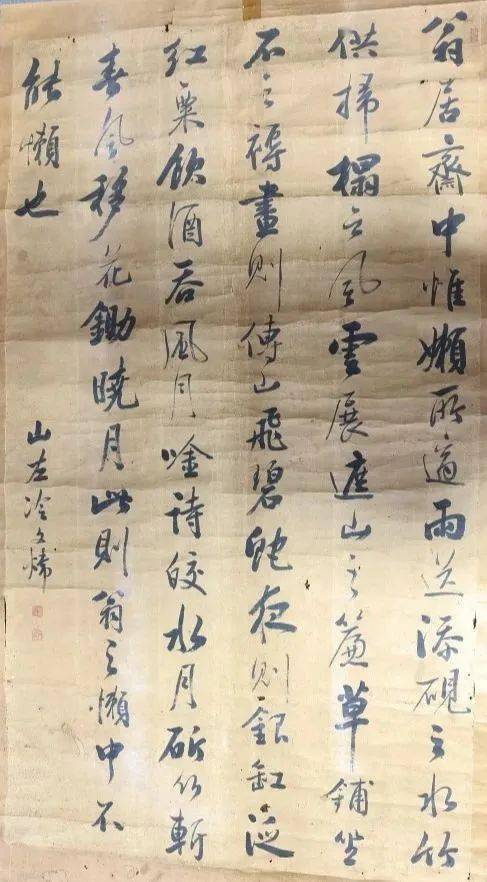 翁居齋中惟嬾所適雨送添硯之水竹
供掃榻之風雲展遮山之簾草鋪坐
石之褥畫則傳山飛碧夜則銀缸泛
紅粟飲酒吞風月唫詩皎水月斫竹斬
春風移花鋤曉月此則翁之懶中不
能懶也
山左冷文煒